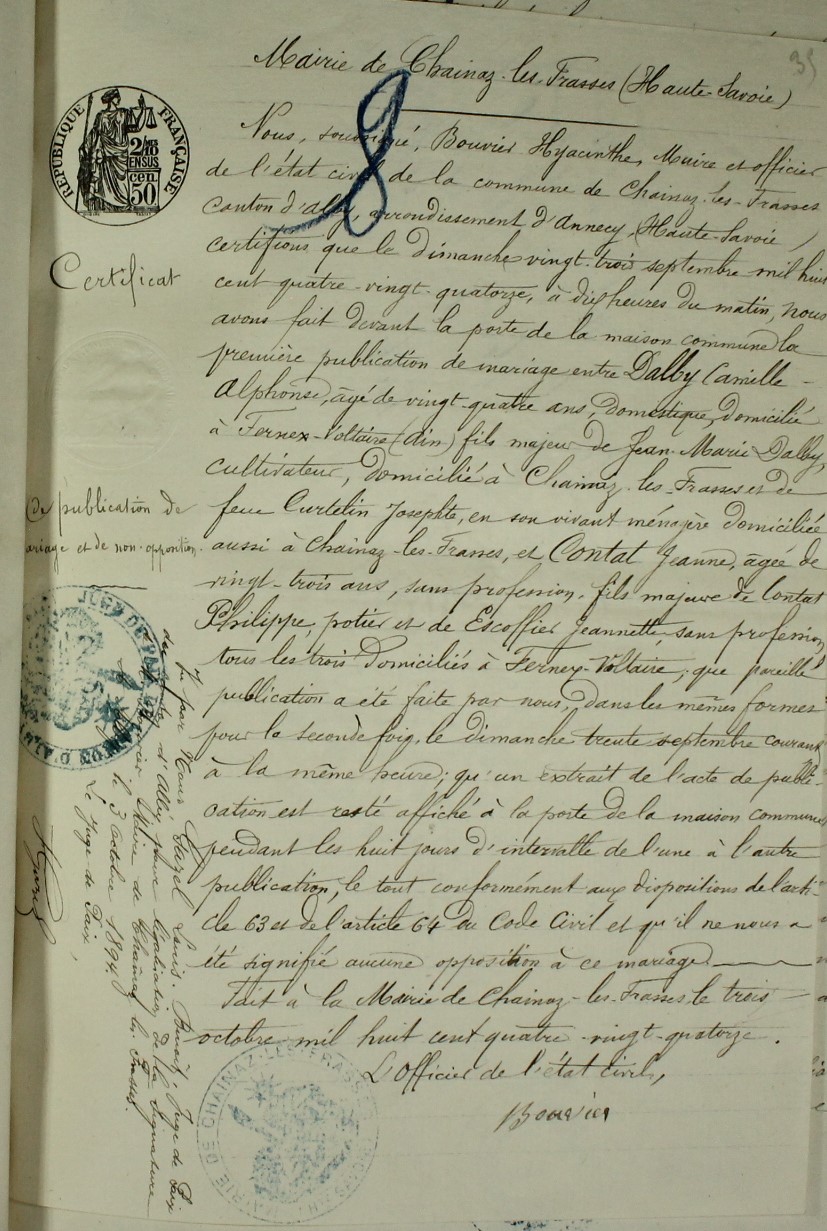 35
Mairie de Chainaz-les-Frasses (Haute-Savoie)
RÉPUBLIQUE FRANÇAISE
2/10 EN SUS
50 cen
8
Nous, soussigné, Bouvier Hyacinthe, Maire et officier
de l'état civil de la commune de Chainaz-les-Frasses
Canton d'alby, arrondissement d'annecy (Haute-Savoie)
certifions que le dimanche vingt-trois septembre mil huit
cent quatre-vingt-quatorze, à dix heures du matin, nous
avons fait devant la porte de la maison commune la
première publication de mariage entre Dalby Camille-
Alphonse, âgé de vingt-quatre ans, domestique, domicilié
à Fernex-Voltaire (Ain) fils majeur de Jean-Marie Dalby,
cultivateur, domicilié à Chainaz-les-Frasses et de
feue Curtelin Josephte, en son vivant ménagère domiciliée
aussi à Chainaz-les-Frasses, et Contat Jeanne, âgée de
vingt-trois ans, sans profession, fils majeure de Contat
Philippe, potier et de Escoffier Jeannette, sans profession,
tous les trois domiciliés à Ferney-Voltaire; que pareille
publication a été faite par nous, dans les mêmes formes
pour la seconde fois, le dimanche trente septembre courant
à la même heure; qu'un extrait de l'acte de publi-
cation est resté affiché à la porte de la maison commune
pendant les huit jours d'intervalle de l'une à l'autre
publication, le tout conformément aux dispositions de l'arti-
cle 63 et de l'article 64 du Code Civil et qu'il ne nous a
été signifié aucune opposition à ce mariage.
Fait à la Mairie de Chainaz-les-Frasses, le trois
octobre mil huit cent quatre-vingt-quatorze.
L'Officier de l'état civil,
Bouvier
Certificat
de publication de
mariage et de non-opposition.
Vu par Nous Louis Benoît, Juge de Paix
du canton d'Alby pour légalisation de la signature
de Bouvier Maire de Chainaz les Frasses.
le 3 octobre 1894
Le Juge de Paix,
MAIRIE DE CHAINAZ-LES-FRASSES